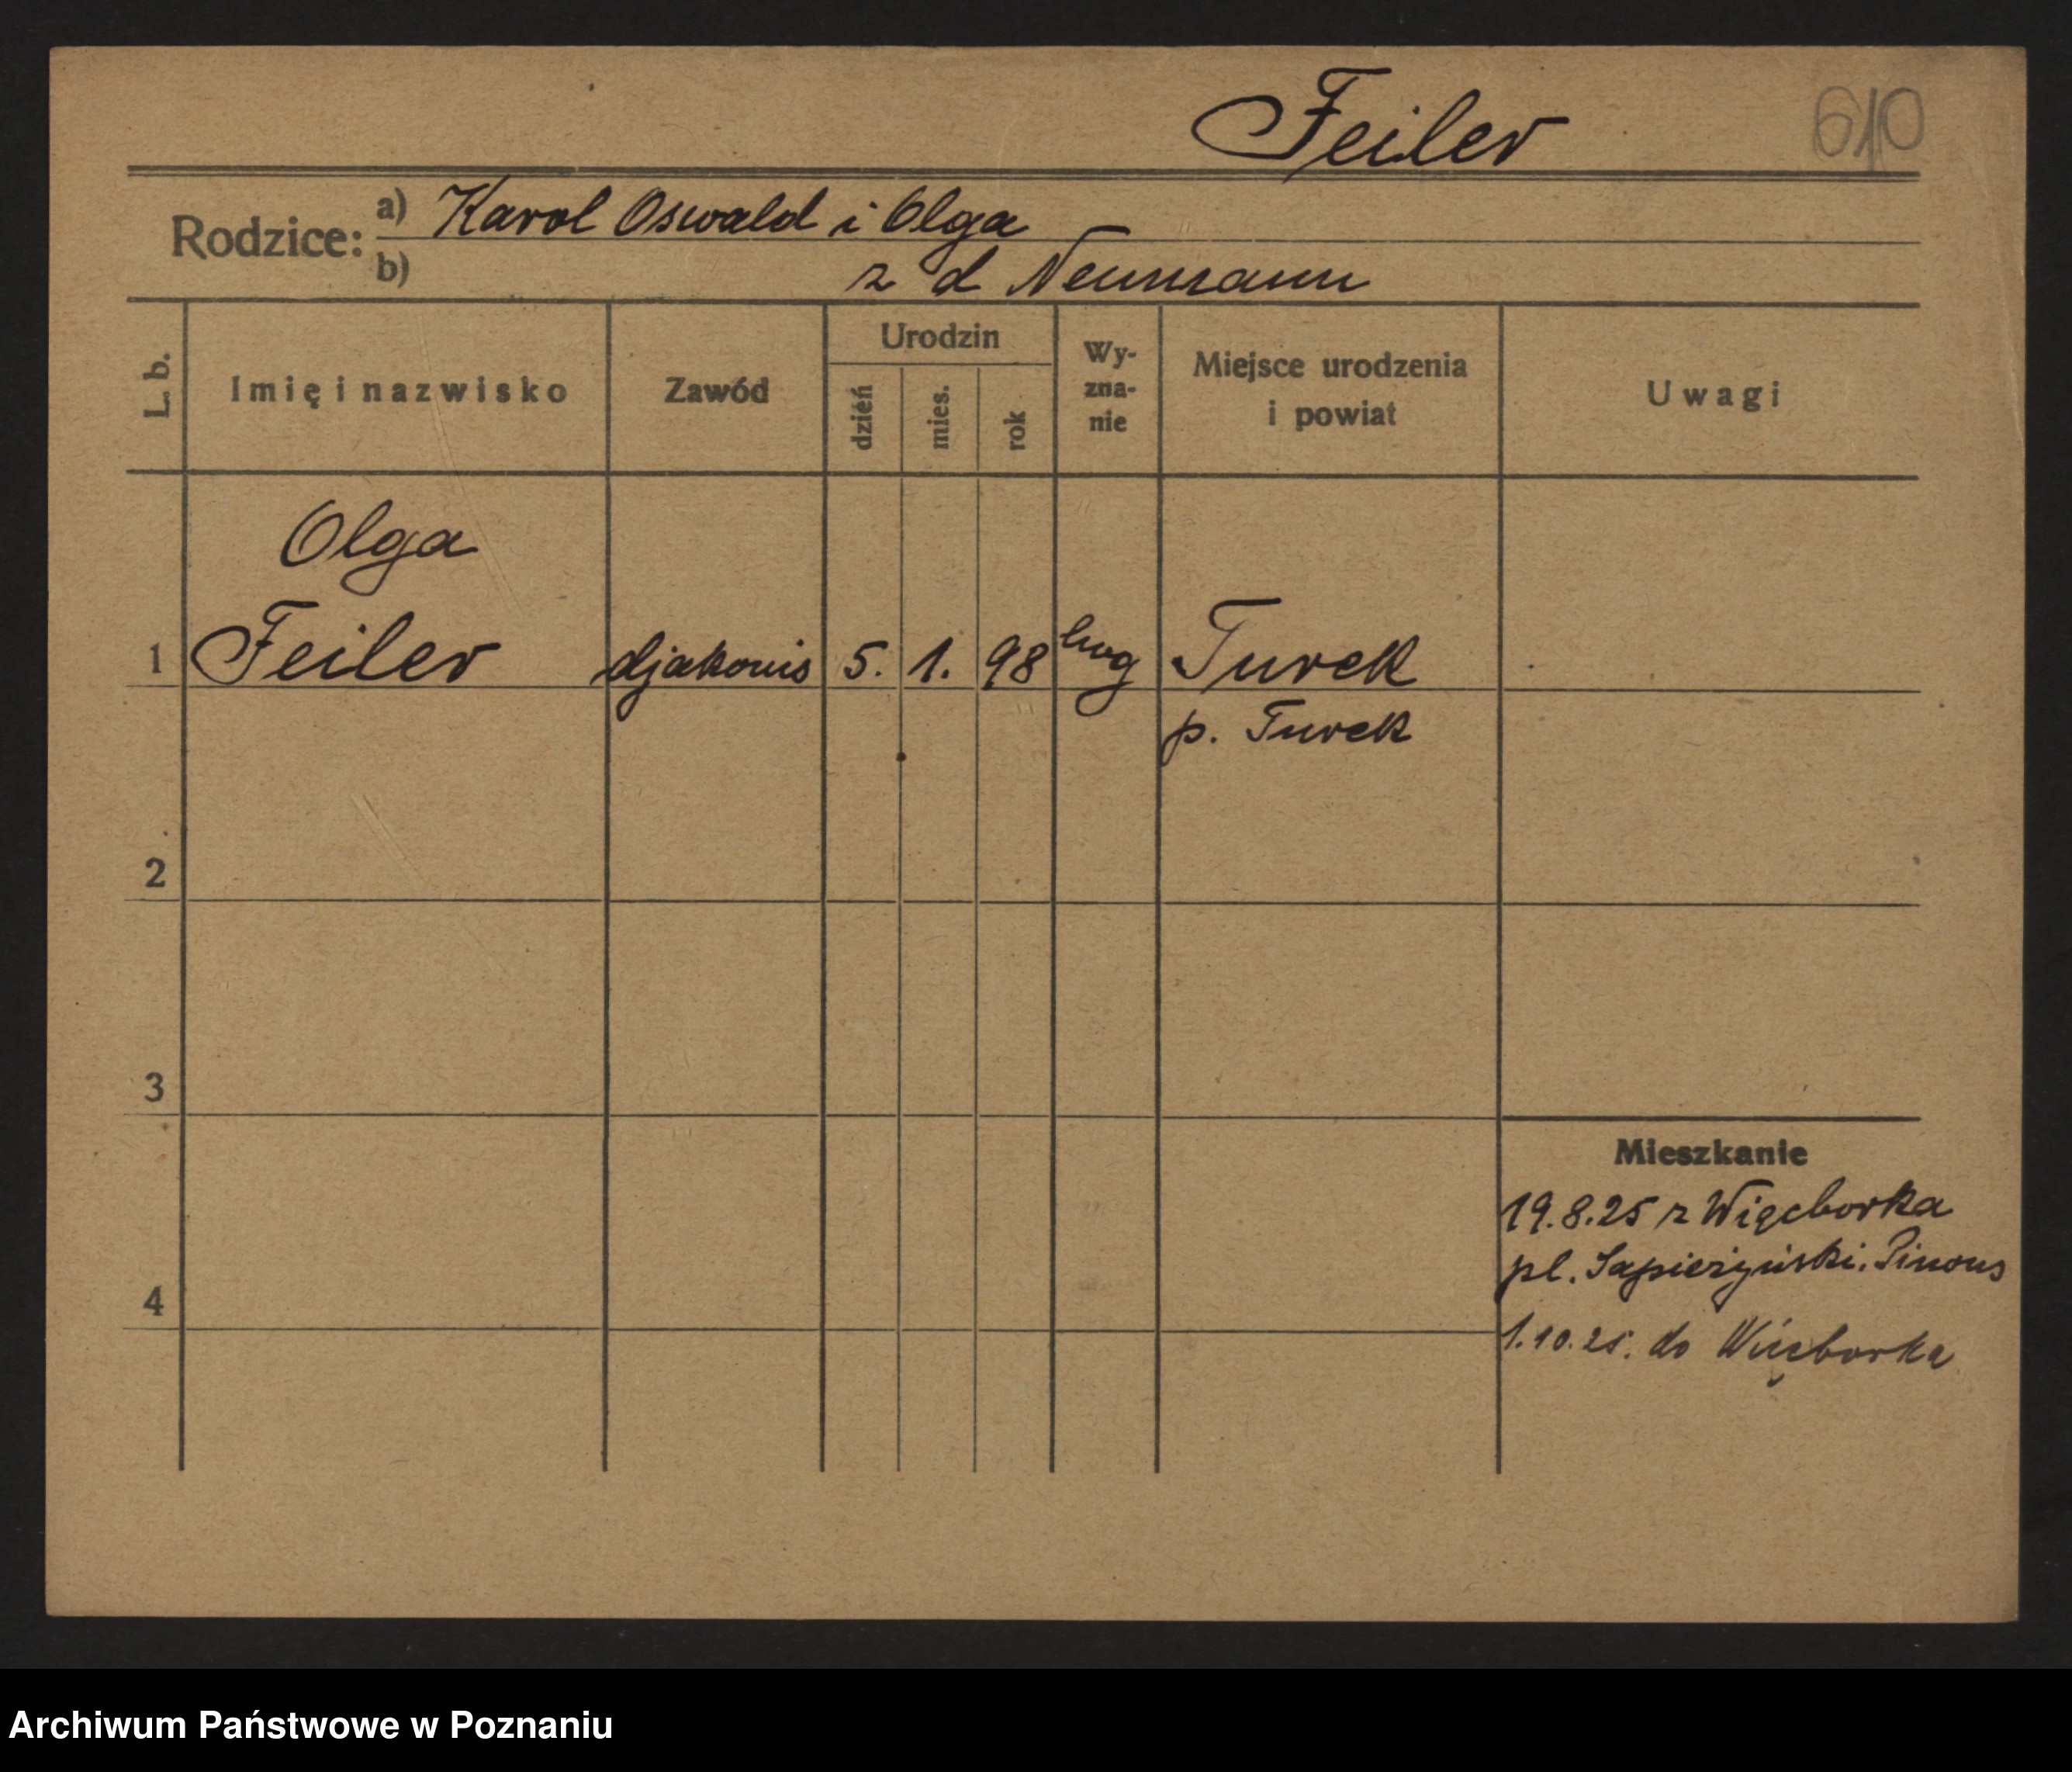 Feiler
610
Rodzice:
a) Karol Oswald i Olga
b) z d Neumann
L. b.
Imię i nazwisko
Zawód
Urodzin
dzień
mies.
rok
Wy-
zna-
nie
Miejsce urodzenia
i powiat
Uwagi
Olga
1 Feiler djakonis 5. 1. 98 Turek
p. Turek
2
3
4
Mieszkanie
19.8.25 z Więcborka
pl. Sapieżyński.
1.10.25. do Więcborka
Archiwum Państwowe w Poznaniu